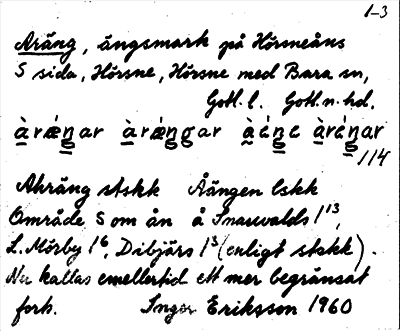 1-3
Aräng, ängsmark på Hörsneåns
S sida, Hörsne, Hörsne med Bara sn,
Gotl. l. Gotl. n. hd.
114
Ahräng stskk Åängen lskk
Område S om ån å Snauvalds 1¹³,
L. Mörby 1⁶, Dibjärs 1³ (enligt stskk).
Nu kallas emellertid ett mer begränsat
förh. Inger Eriksson 1960